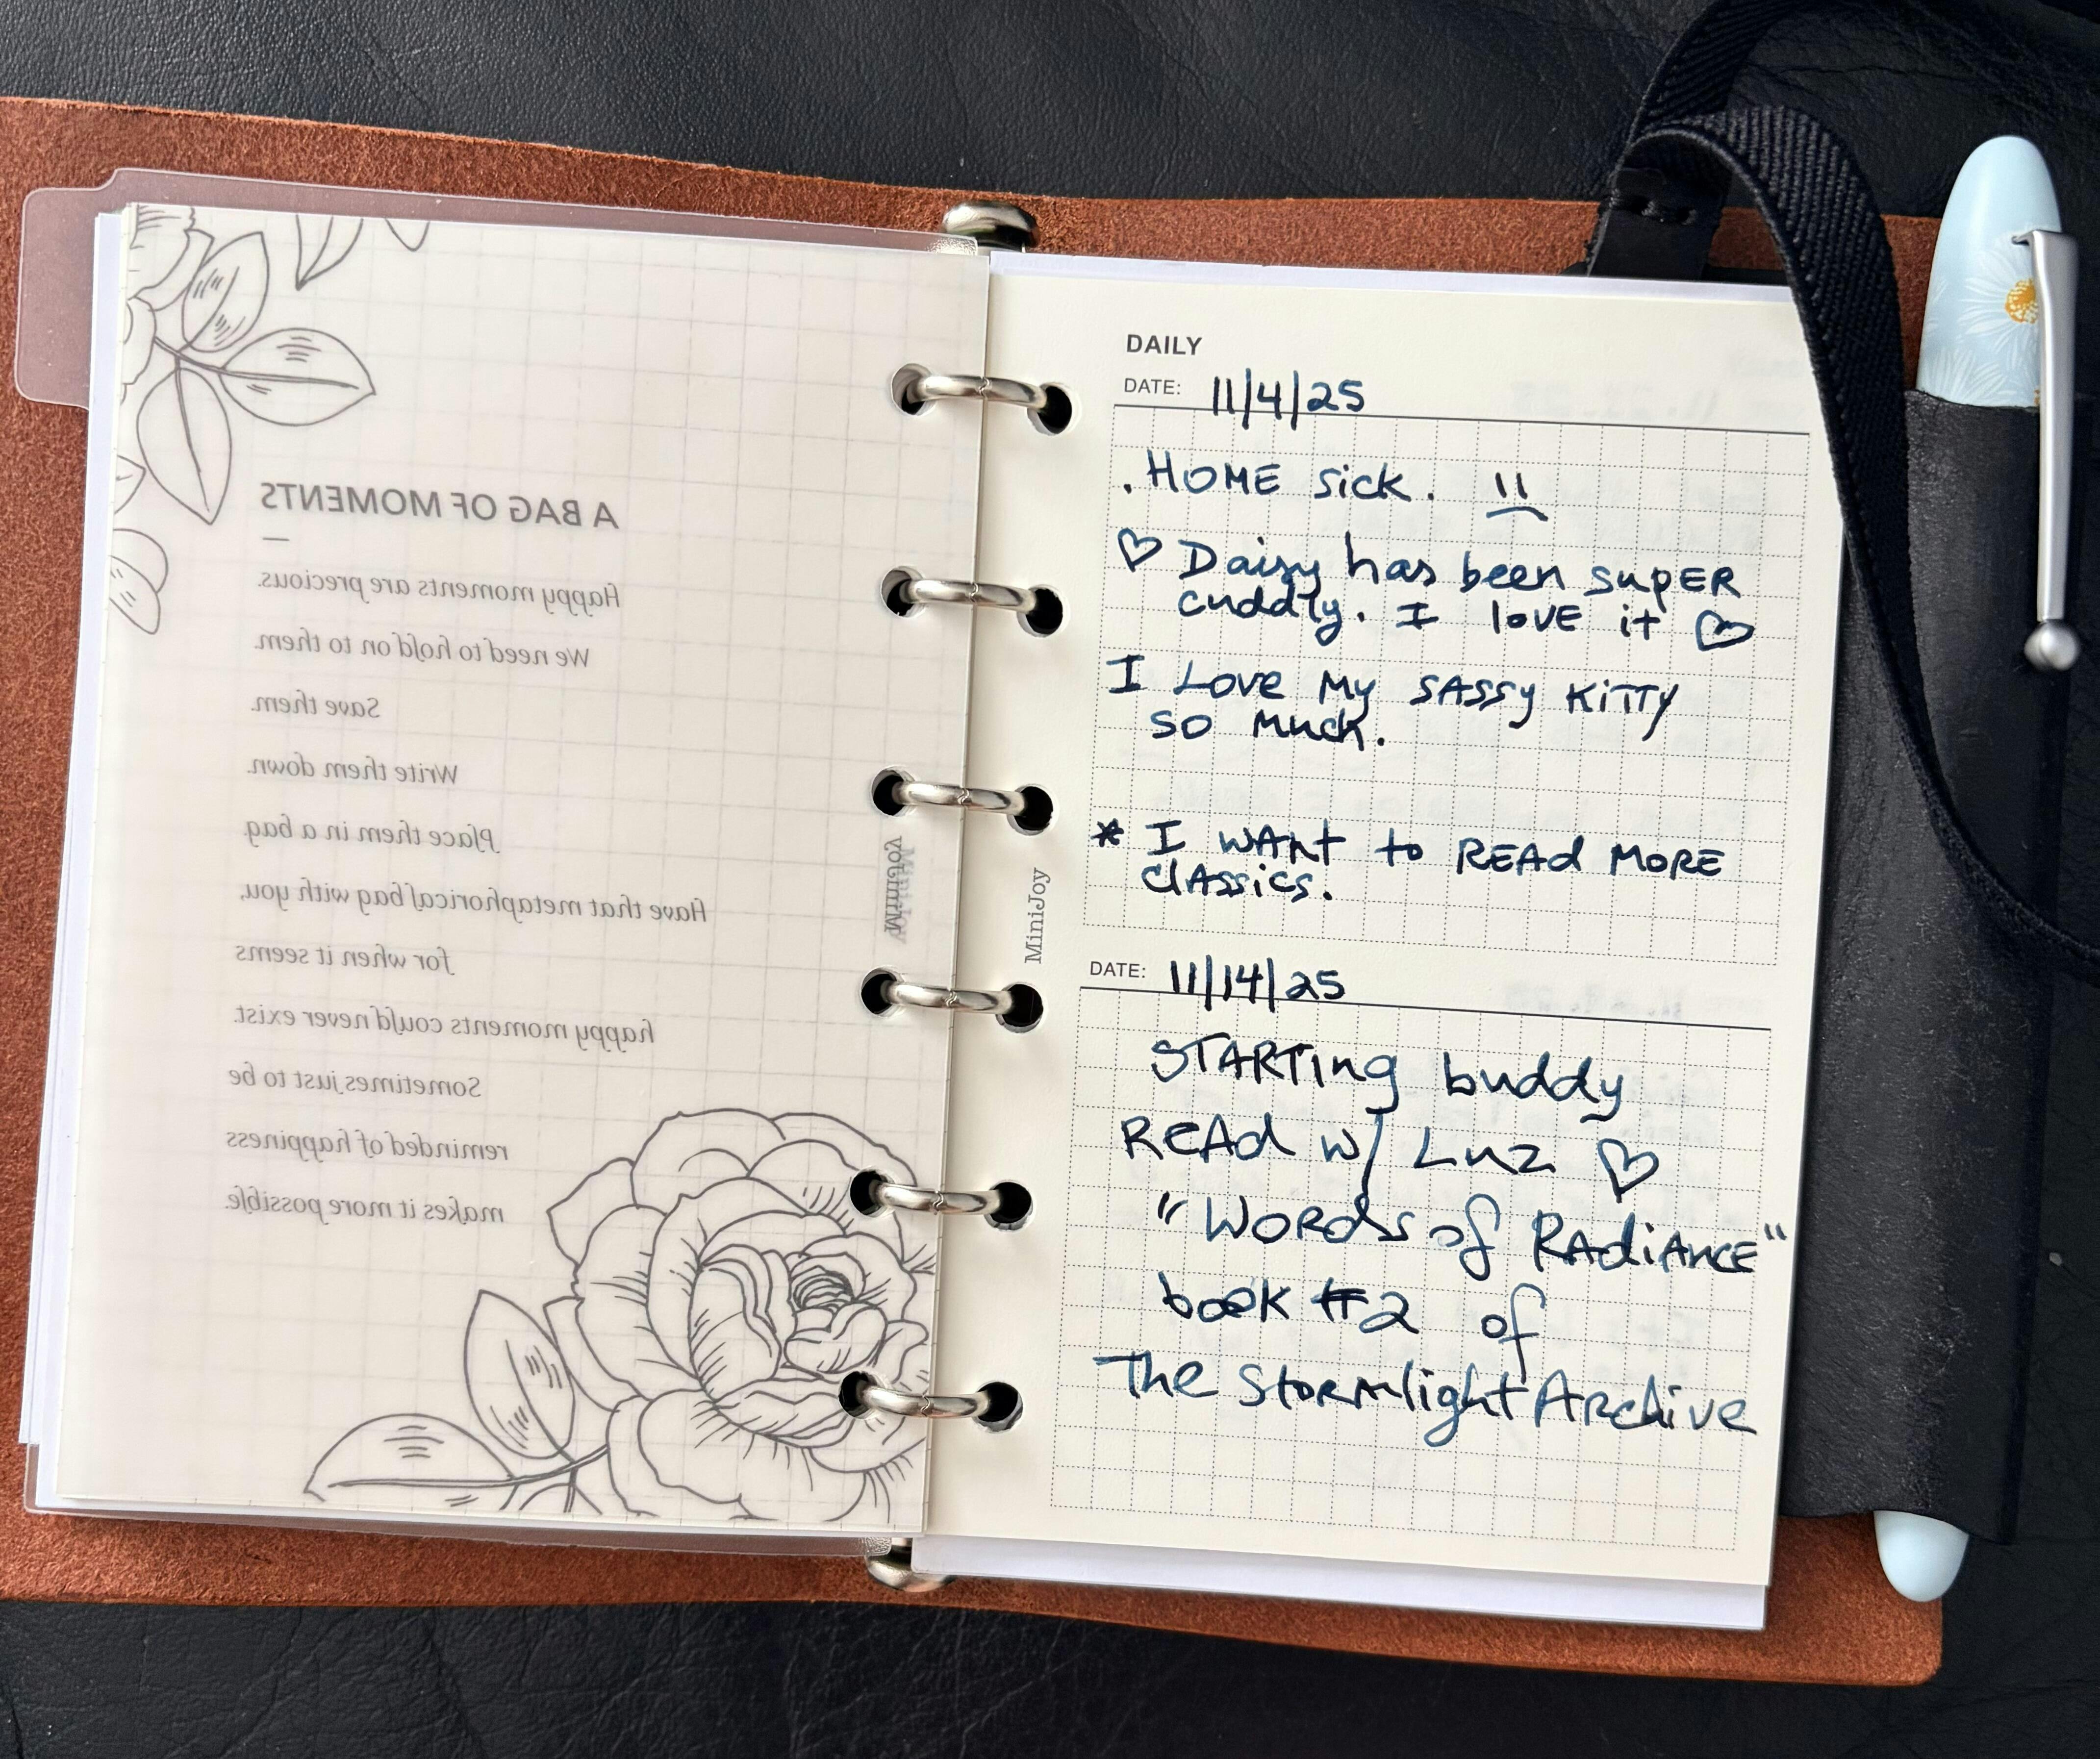 A BAG OF MOMENTS
Happy moments are precious.
We need to hold on to them.
Save them.
Write them down.
Place them in a bag.
Have that metaphorical bag with you,
for when it seems
happy moments could never exist.
Sometimes just to be
reminded of happiness
makes it more possible.
MiniJoy
MiniJoy
DAILY
DATE: 11/4/25
. HOME sick.
♡ Daisy has been supER
cuddly. I lovE it ♡
I Love My SASSy KiTTy
so Much.
* I WANt to READ MORE
ClAssics.
DATE: 11/14/25
STARTing buddy
READ w/ Luz ♡
"WORds of RAdiANCE"
book #2 of
The StoRMlight ARchive